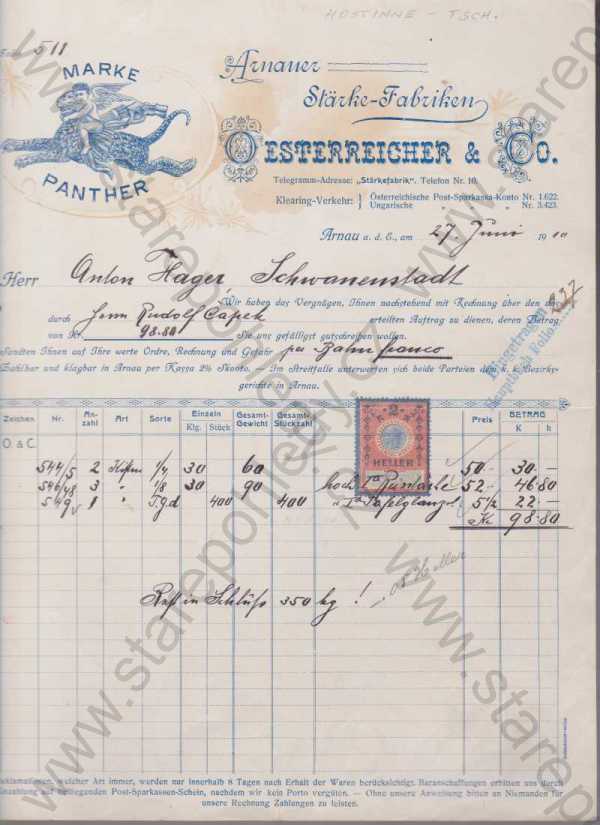 HOSTINNE - TSCH.
511
MARKE PANTHER
Arnauer
Stärke-Fabriken
OESTERREICHER & Co.
Telegramm-Adresse: „Stärkefabrik“. Telefon Nr. 10.
Klearing-Verkehr: } Österreichische Post-Sparkassa-Konto Nr. 1.622.
Ungarische " " " Nr. 3.423.
Arnau a. d. E., am 27. Juni 1910
Herr Anton Hager, Schwanenstadt
Wir haben das Vergnügen, Ihnen nachstehend mit Rechnung über den uns
durch Herrn Rudolf Capek erteilten Auftrag zu dienen, deren Betrag
von K 98.80 Sie uns gefälligst gutschreiben wollen.
Sandten Ihnen auf Ihre werte Ordre, Rechnung und Gefahr per Bahn franco
Zahlbar und klagbar in Arnau per Kassa 2% Skonto. — Im Streitfalle unterwerfen sich beide Parteien dem k. k. Bezirks-
gerichte in Arnau.
Eingetragen
Hauptbuch Folio 237
Zeichen Nr. Anzahl Art Sorte Einzeln Klg. Stück Gesamt-Gewicht Gesamt-Stückzahl Preis BETRAG K h
O. & C.
544/5 2 Kisten 1/4 30 60 50 - 30 -
546/48 3 " 1/8 30 90 52 - 46.80
549 1 " 400 400 5 1/2 22 -
98.80
2
HELLER
Rest in Schluß 350 kg!
Reklamationen, welcher Art immer, werden nur innerhalb 8 Tagen nach Erhalt der Waren berücksichtigt. Baranschaffungen erbitten uns durch
Einzahlung auf beiliegenden Post-Sparkassen-Schein, nachdem wir kein Porto vergüten. — Ohne unsere Anweisung bitten an Niemanden für
unsere Rechnung Zahlungen zu leisten.
www.starepohledy.cz